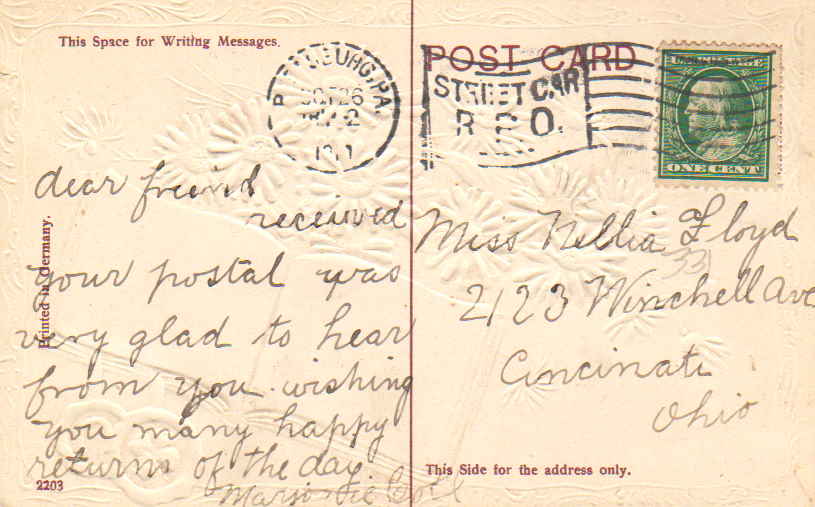 This Space for Writing Messages.
POST CARD
PA.
OCT 26
STREET CAR
R. P. O.
ONE CENT
Printed in Germany.
dear freind
received
your postal was
very glad to hear
from you. wishing
you many happy
returns of the day
Marjorie
2203
Miss Nellia Floyd
33
2123 Winchell Ave
Cincinati
Ohio
This Side for the address only.